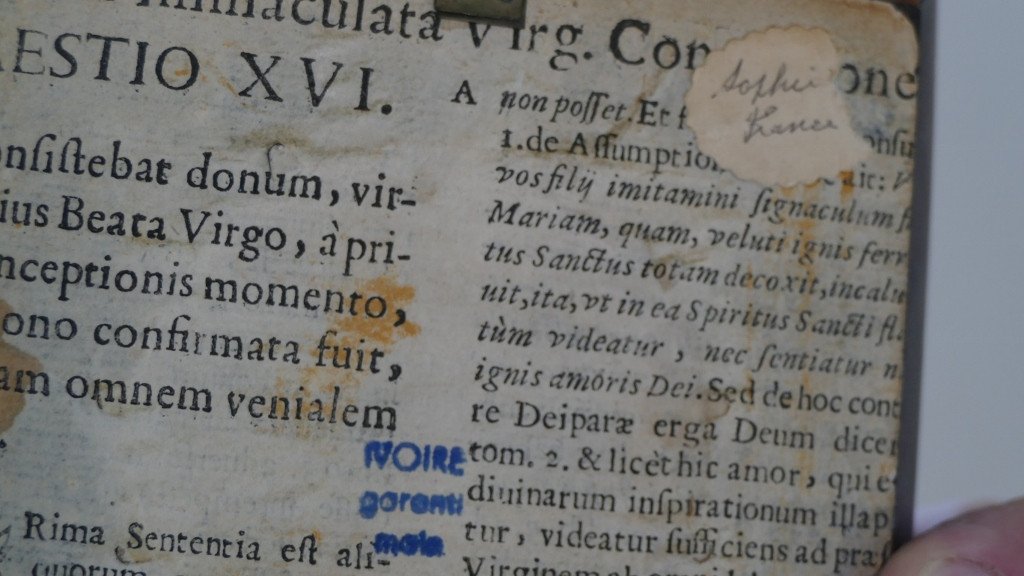 Immaculata Virg. Con one
ESTIO XVI.
onsistebat donum, vir-
ius Beata Virgo, à pri-
nceptionis momento,
ono confirmata fuit,
am omnem venialem
Rima Sententia est ali-
quorum
A
non posset. Et f onsu
1. de Assumptio ait: V
vos filij imitamini signaculum fi
Mariam, quam, veluti ignis ferr
tus Sanctus totam decoxit, incalu
uit, ita, vt in ea Spiritus Sancti fl
tùm videatur, nec sentiatur n
ignis amoris Dei. Sed de hoc cont
re Deiparæ erga Deum dicer
tom. 2. & licèt hic amor, qui e
diuinarum inspirationum illap
tur, videatur sufficiens ad præs
Virginem
Sophie
France
IVOIRE
garanti